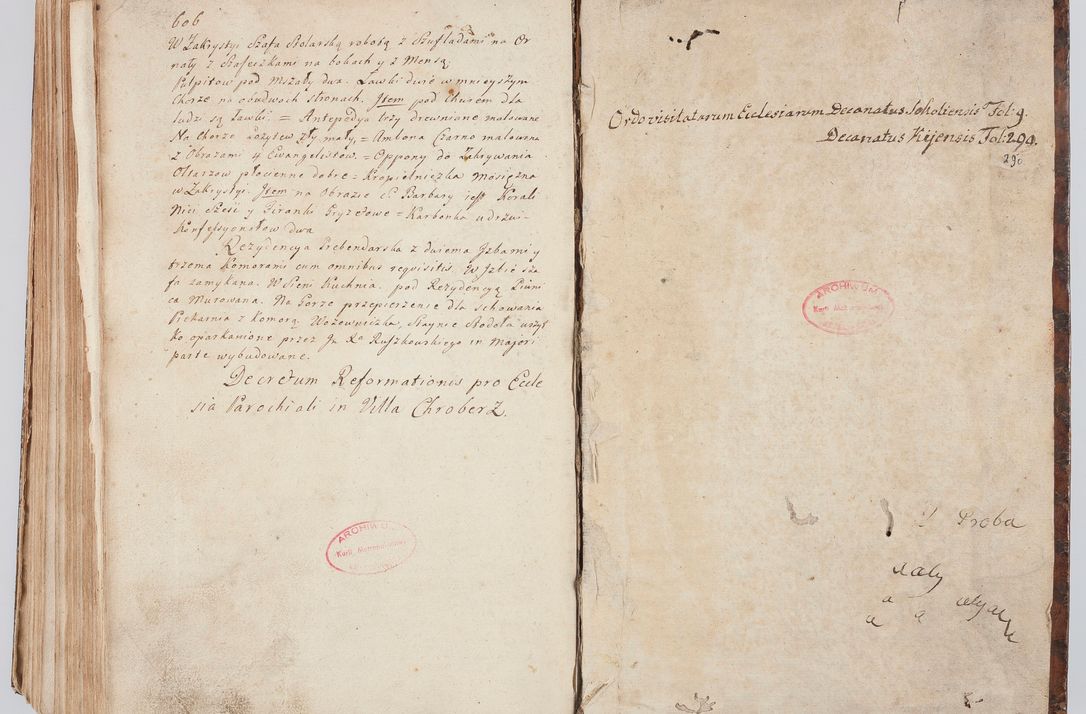 606
W Zakrystyi Szafa Stolarską robotą z Szufladami na Or
naty z Szafeczkami na bokach y z Mensą;
Pulpitow pod Mszały dwa. Ławki dwie w mnieyszym
Chorze po obudwoch stronach. Item pod Churem dla
ludzi są Ławki. = Antepedya trzy drewniane malowane
Na Chorze Pozytew zły mały, = Ambona Czarno malowana
z Obrazami 4 Ewangelistow. = Oppony do Zakrywania
Ołtarzow płocienne dobre = Kropielniczka Mosiężna
w Zakrystyi. Item na Obrazie S. Barbary jest Korali
Nici Sześć y
Konfessyonałow dwa
Rezydencya Prebendarska z dwiema Izbami y
trzema Komorami cum omnibus requisitis. W Izbie sza
fa zamykana. W Sieni Kuchnia. pod Rezydencyą Piwni
ca Murowana. Na Gorze przepierzenie dla Schowania
Piekarnia z Komorą Wozowniczka, Staynie Stodoła wszyst
ko oparkanione przez Ruszkowskiego in Majori
parte wybudowane.
Decretum Reformationis pro Eccle
sia Parochiali in Villa Chroberz.
ARCHIWUM
Kurii Metropolitalnej
Ordo visitatarum Ecclesiarum Decanatus Sokoliensis Fol: 9.
Decanatus Kijensis Fol: 294.
290
ARCHIWUM
Kurii Metropolitalnej
Proba
a
a
a